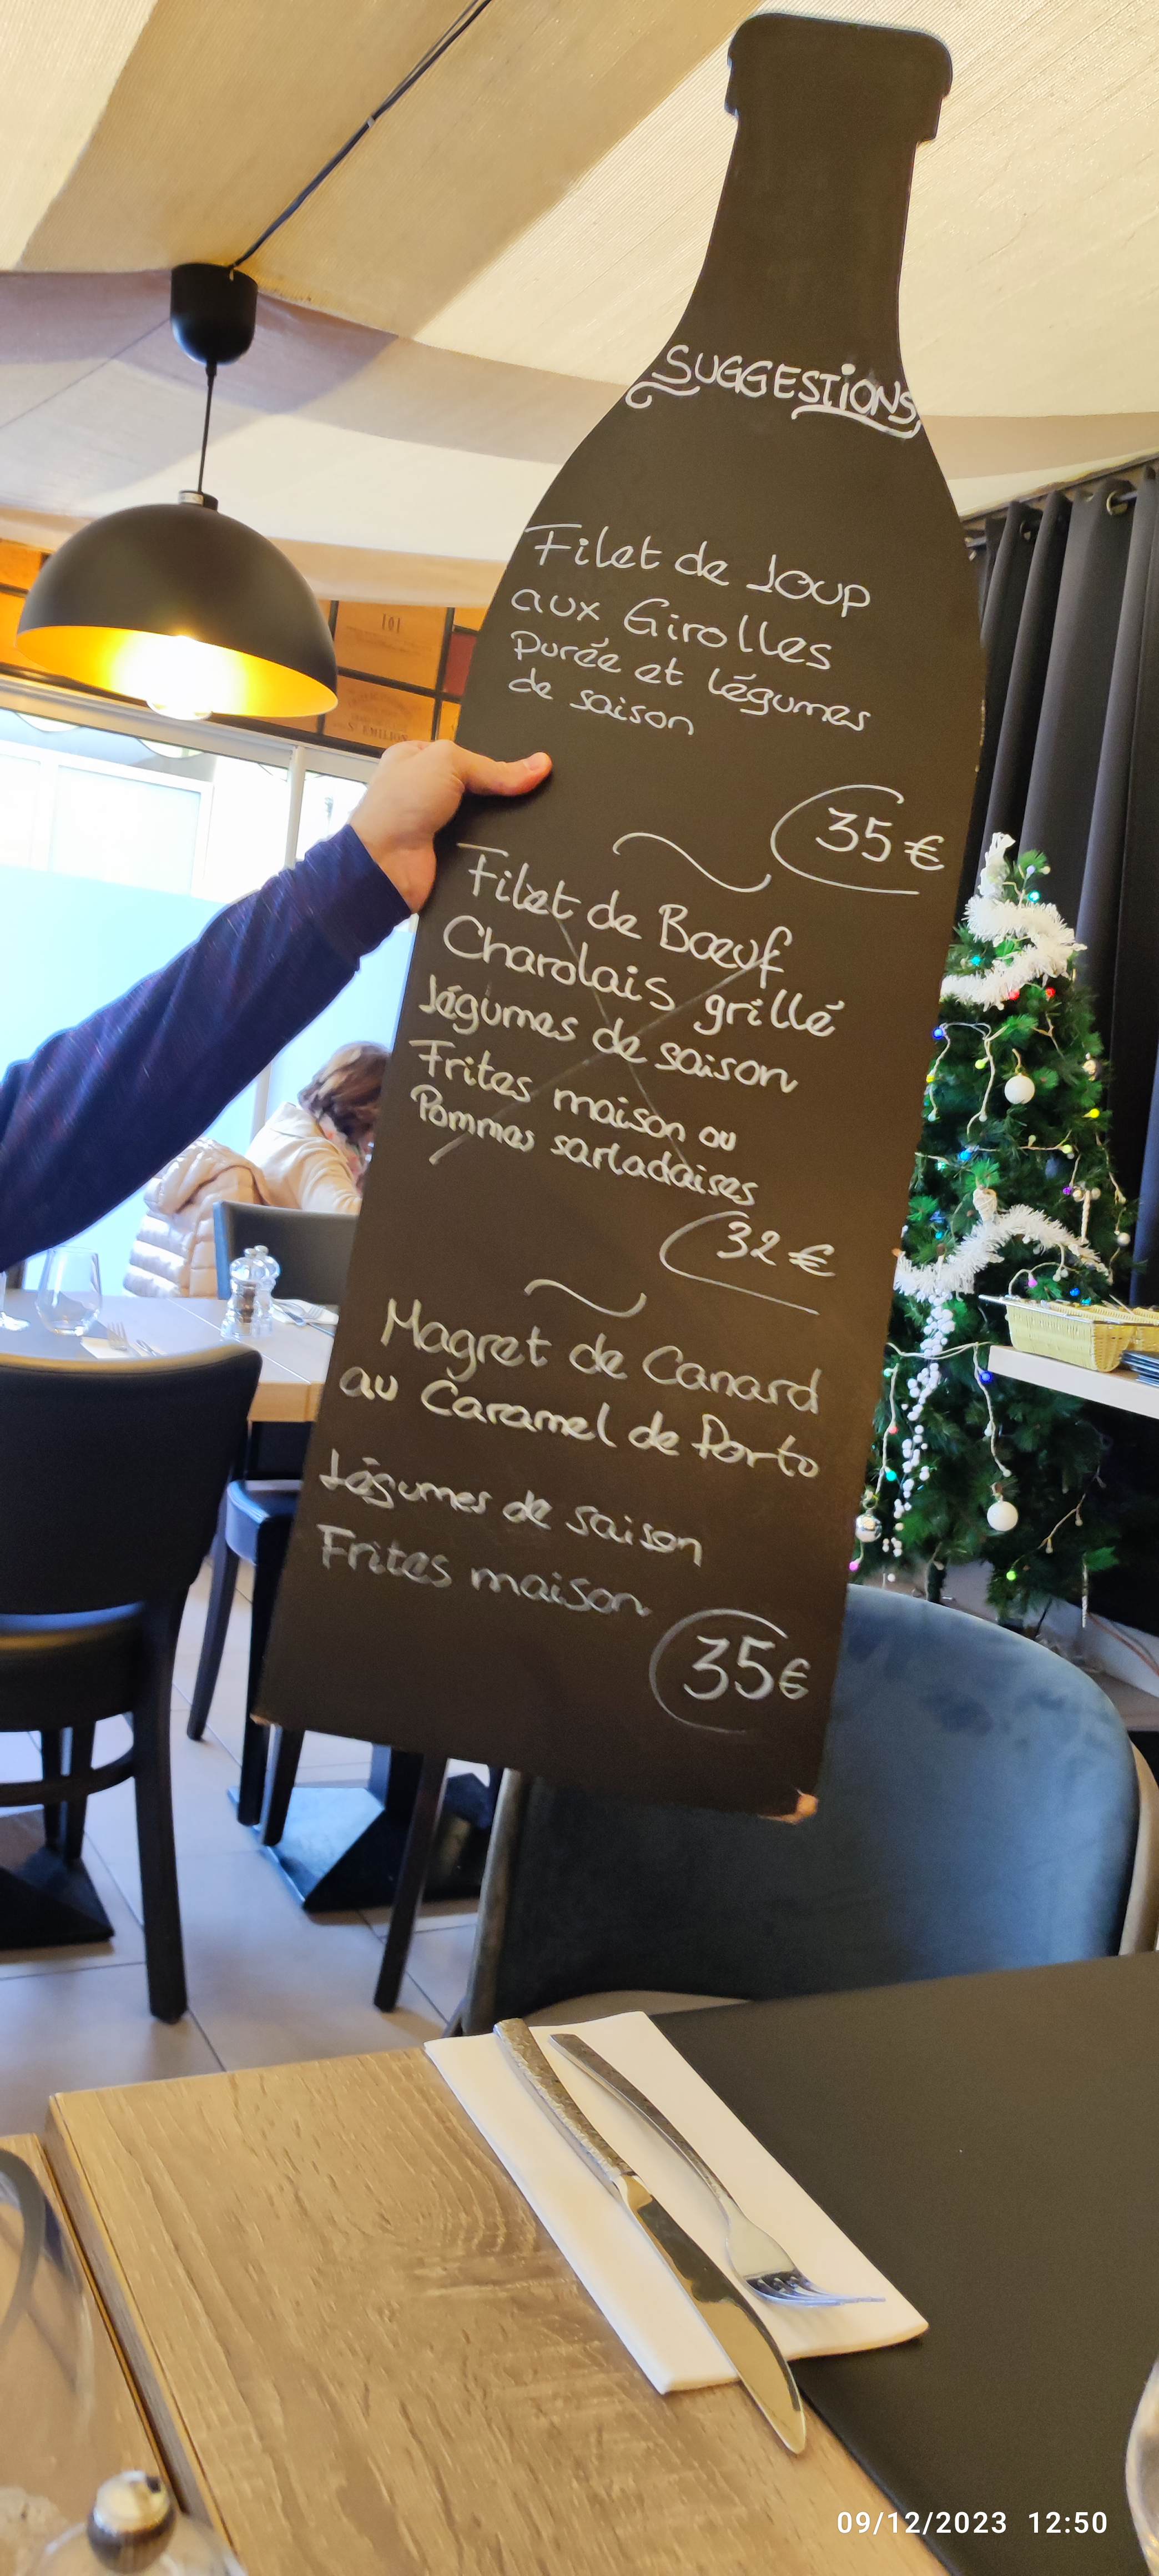 SUGGESTIONS
Filet de Loup
aux Girolles
Purée et légumes
de saison
35€
Filet de Bœuf
Charolais grillé
Légumes de saison
Frites maison ou
Pommes sarladaises
32€
Magret de Canard
au Caramel de Porto
Légumes de saison
Frites maison
35€
101
St EMILION
09/12/2023 12:50